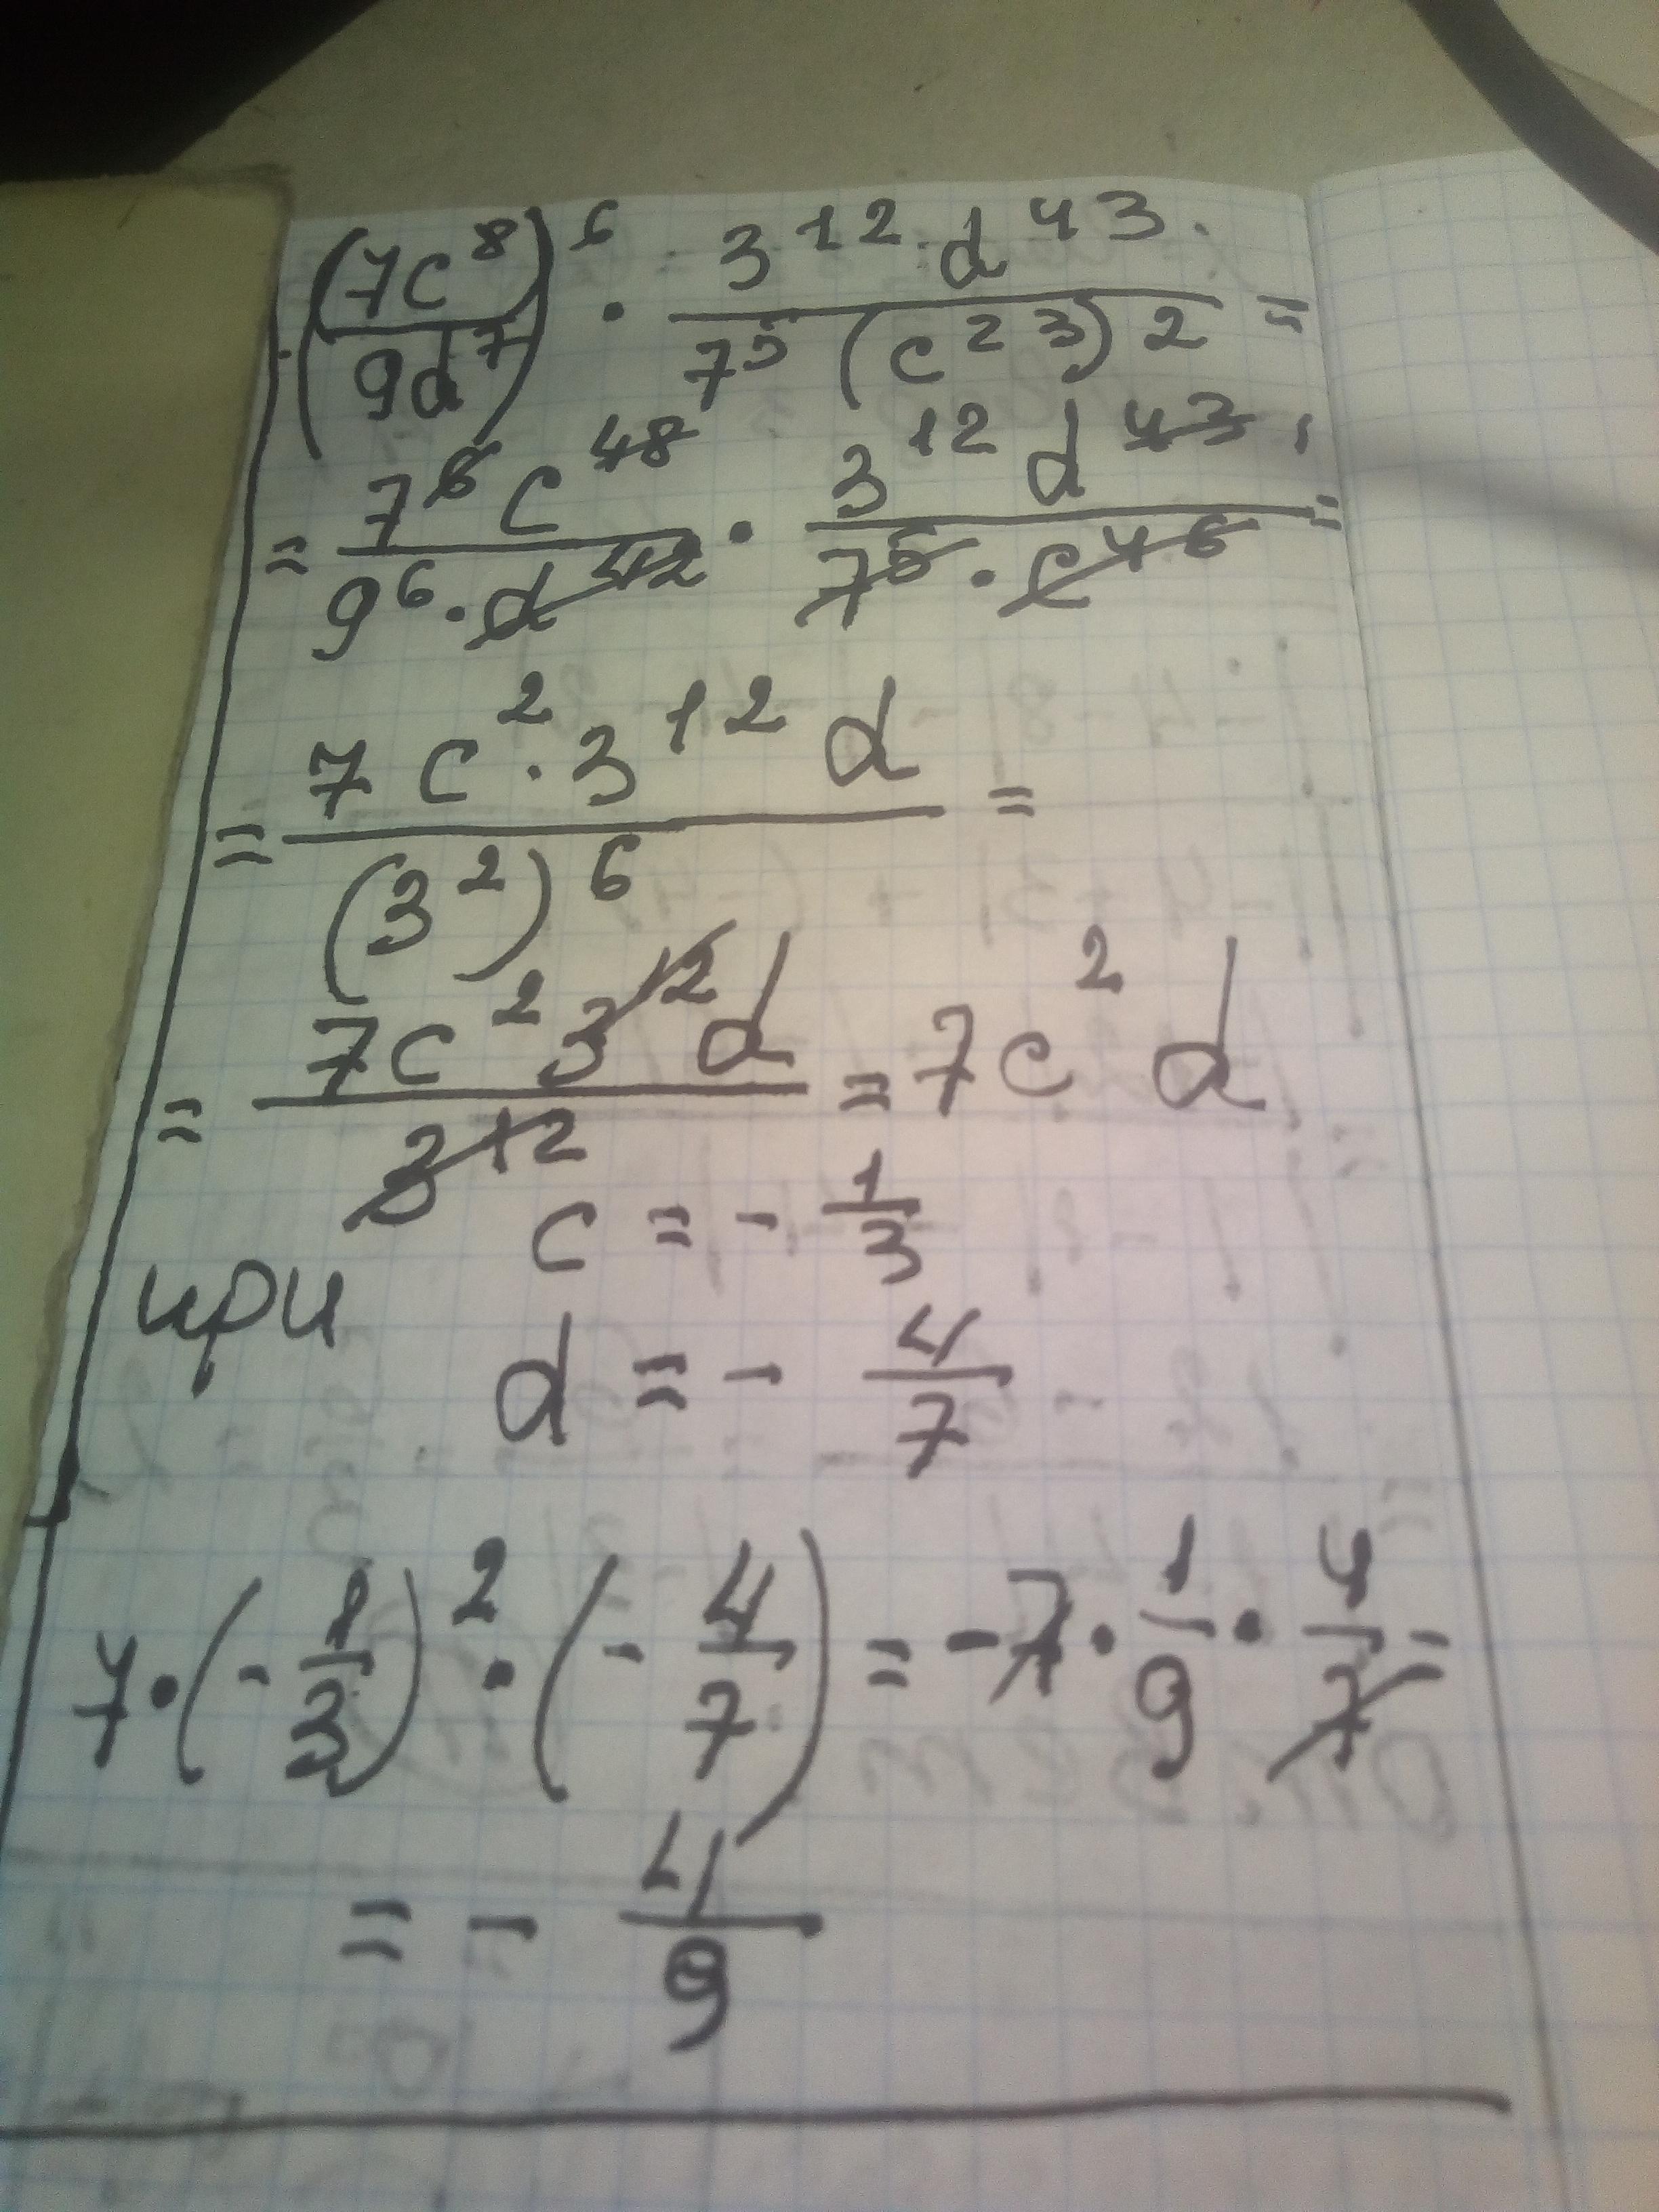 (7c⁸/9d⁷)⁶ · 3¹²·d⁴³/7⁵(c²³)² =
= 7⁶c⁴⁸/9⁶·d⁴² · 3¹²d⁴³/7⁵·c⁴⁶ =
= 7c²·3¹²d/(3²)⁶ =
= 7c²3¹²d/3¹² = 7c²d
при c = - 1/3
d = - 4/7
7·(-1/3)²·(-4/7) = -7·1/9·4/7 =
= - 4/9